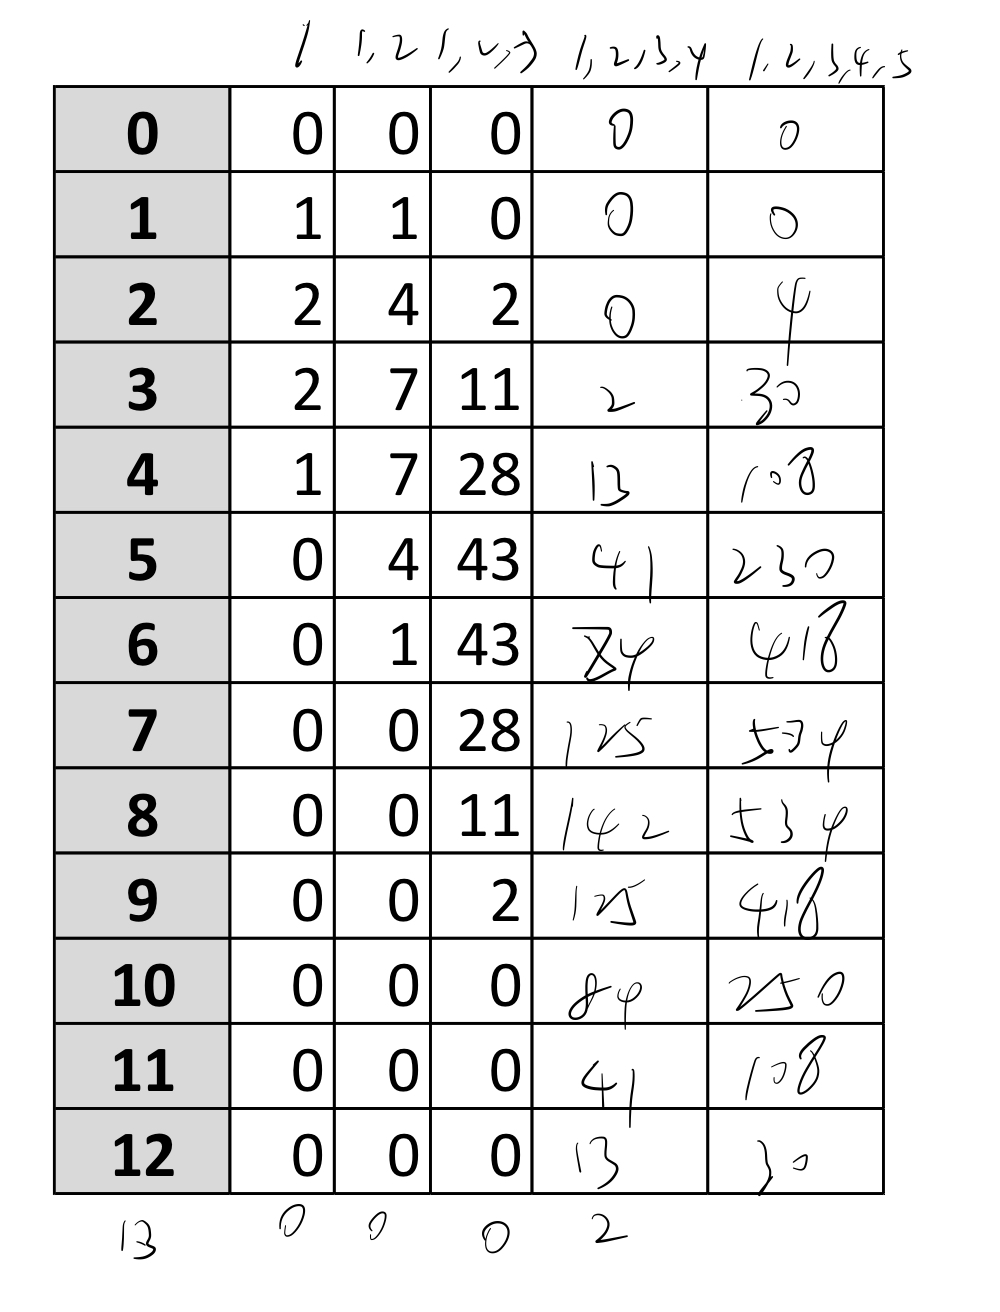 1 1,2 1,2,3 1,2,3,4 1,2,3,4,5
0 0 0 0 0 0
1 1 1 0 0 0
2 2 4 2 0 4
3 2 7 11 2 30
4 1 7 28 13 108
5 0 4 43 41 230
6 0 1 43 84 418
7 0 0 28 125 534
8 0 0 11 142 534
9 0 0 2 125 418
10 0 0 0 84 250
11 0 0 0 41 108
12 0 0 0 13 30
13 0 0 0 2